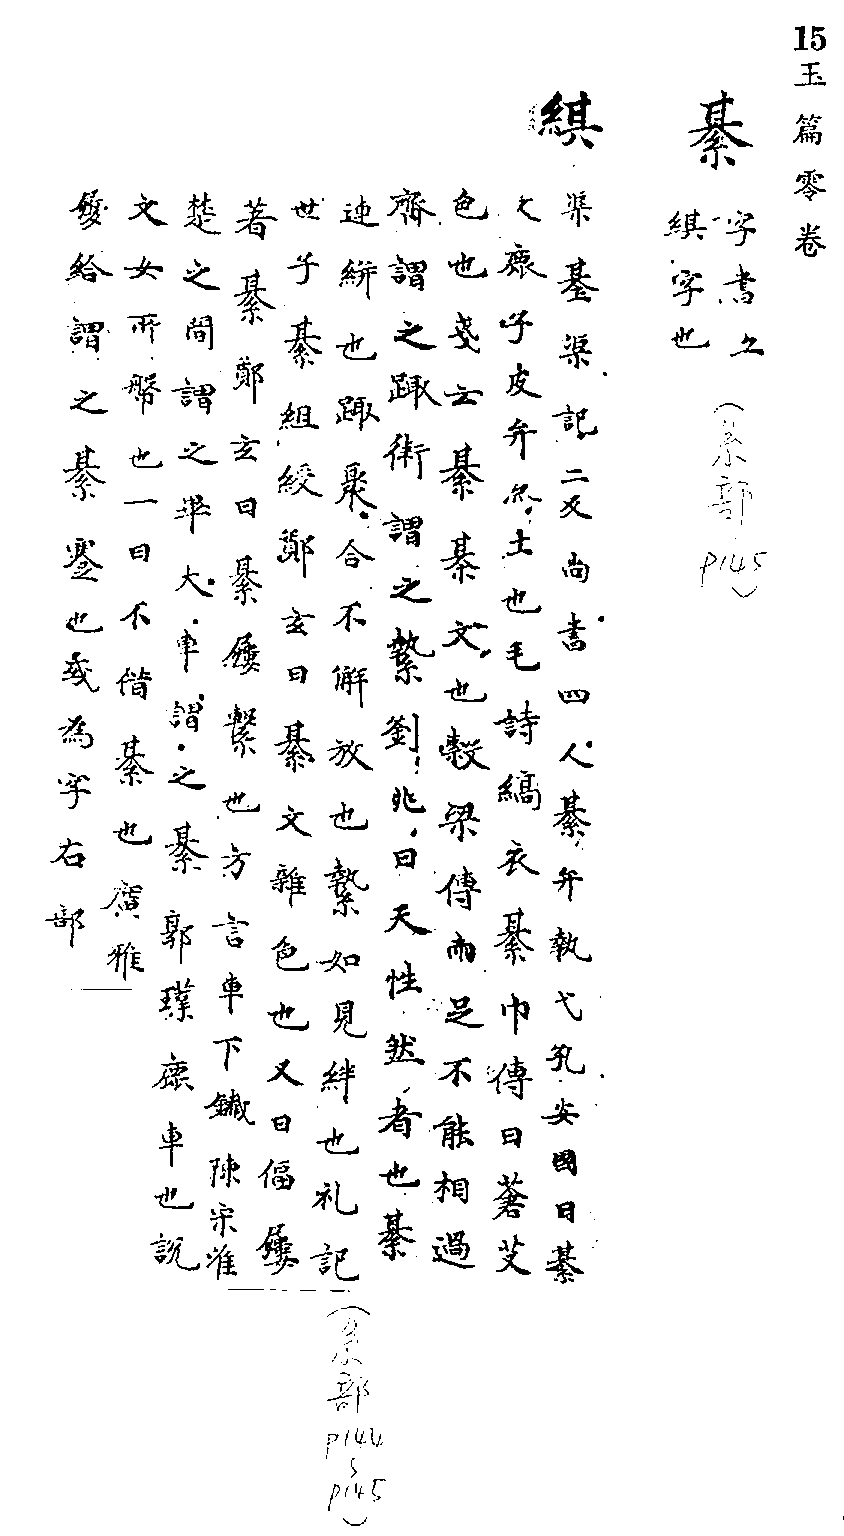 15玉篇零卷
綦
字書亦
綨字也
(糸部
P145)
綨
渠基渠記二反尚書四人綦弁執戈孔安國曰綦
文鹿子皮弁亦士也毛詩縞衣綦巾傳曰蒼艾
色也箋云綦綦文也穀梁傳兩足不能相過
齊謂之踙衛謂之縶劉兆曰天性然者也綦
連絣也踙聚合不解放也縶如見絆也礼記
世子綦組綬鄭玄曰綦文雜色也又曰偪屨
著綦鄭玄曰綦屨繫也方言車下鐵陳宋淮
楚之間謂之畢大車謂之綦郭璞鹿車也說
文女所幣也一曰不借綦也廣雅
給謂之綦蹇也或為字右部
(糸部
P144
~
P145)